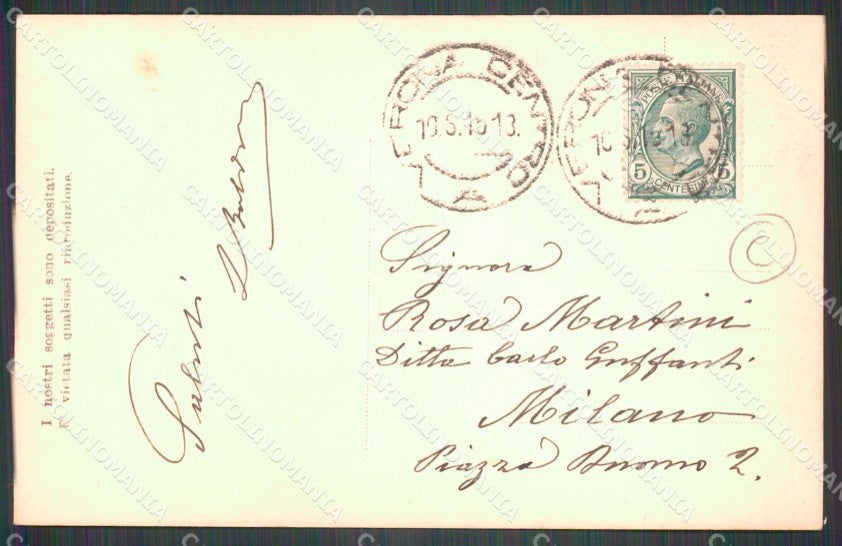 I nostri soggetti sono depositati.
E' vietata qualsiasi riproduzione.
Saluti
VERONA CENTRO
A
POSTE ITALIANE
5 CENTESIMI 5
C
Signora
Rosa Martini
Ditta Carlo Guffanti
Milano
Piazza Duomo 2.
CARTOLINOMANIA